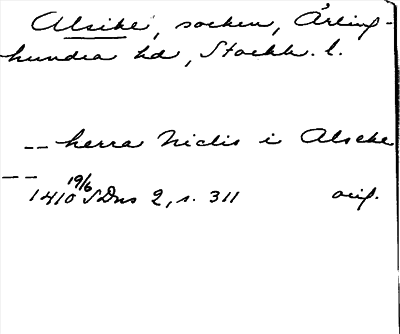 Alsike, socken, Ärling-
hundra hd, Stockh. l.
-- herra Niclis i Alseke
--
1410 19/6 SDns 2, s. 311 orig.